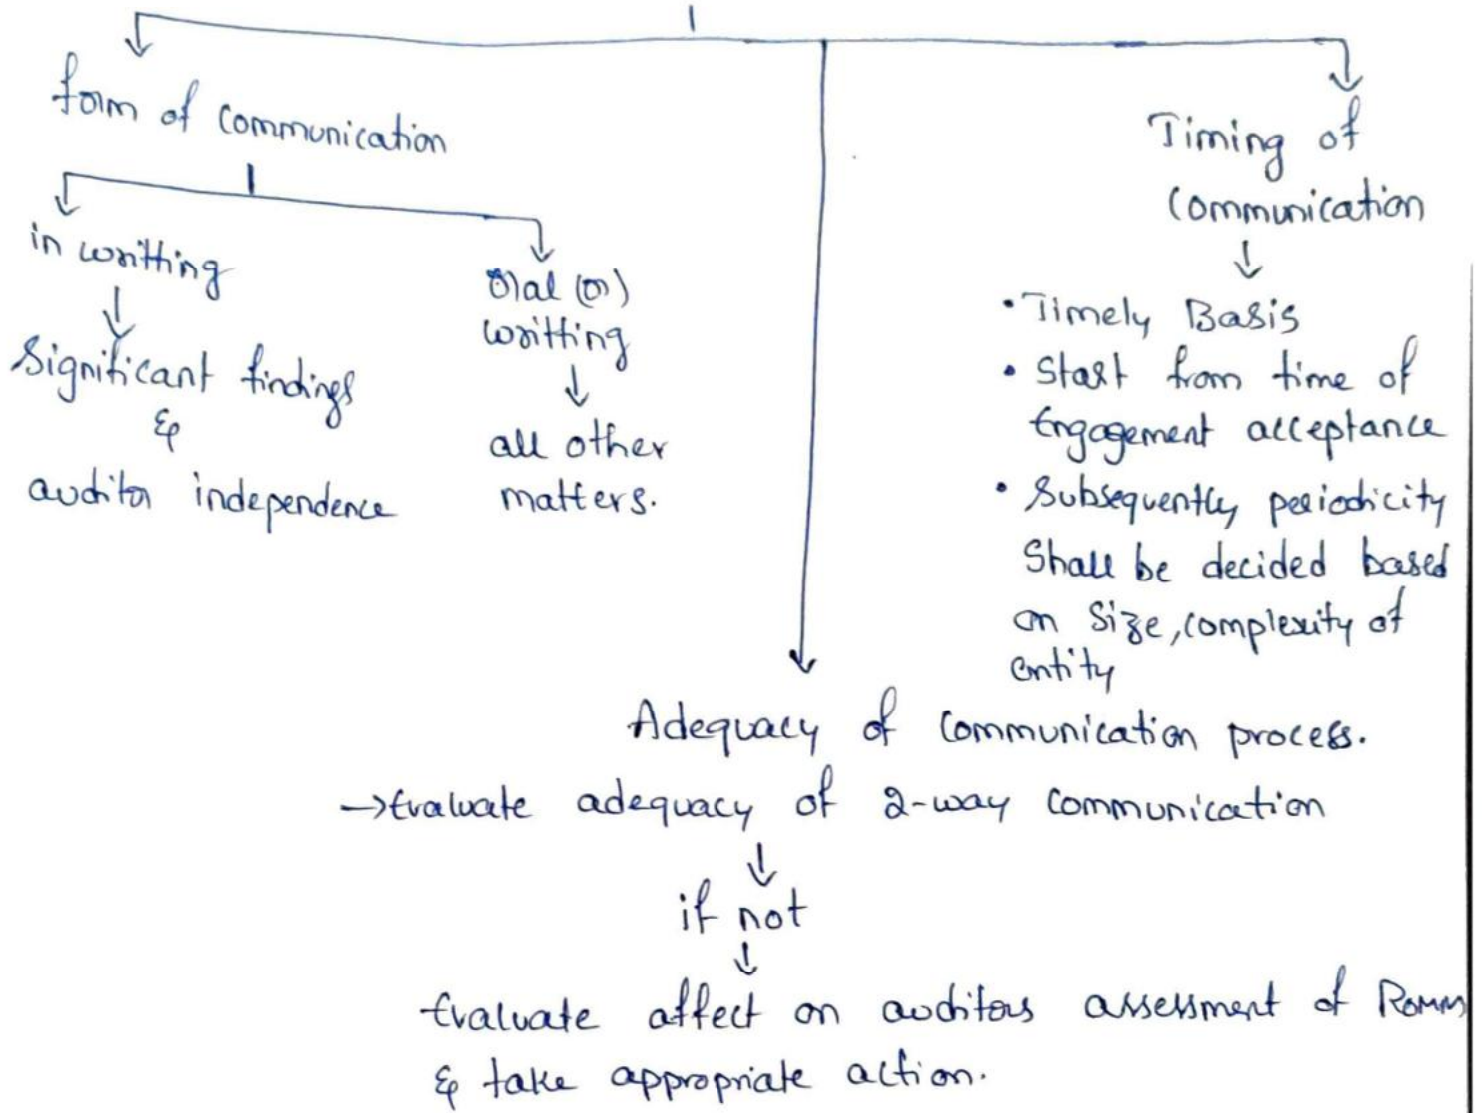 form of communication
in writting
Significant findings
&
auditor independence
Oral (or)
writting
all other
matters.
Timing of
Communication
• Timely Basis
• Start from time of
Engagement acceptance
• Subsequently periodicity
Shall be decided based
on Size, complexity of
entity
Adequacy of communication process.
→Evaluate adequacy of 2-way communication
if not
Evaluate affect on auditors assessment of Romm
& take appropriate action.